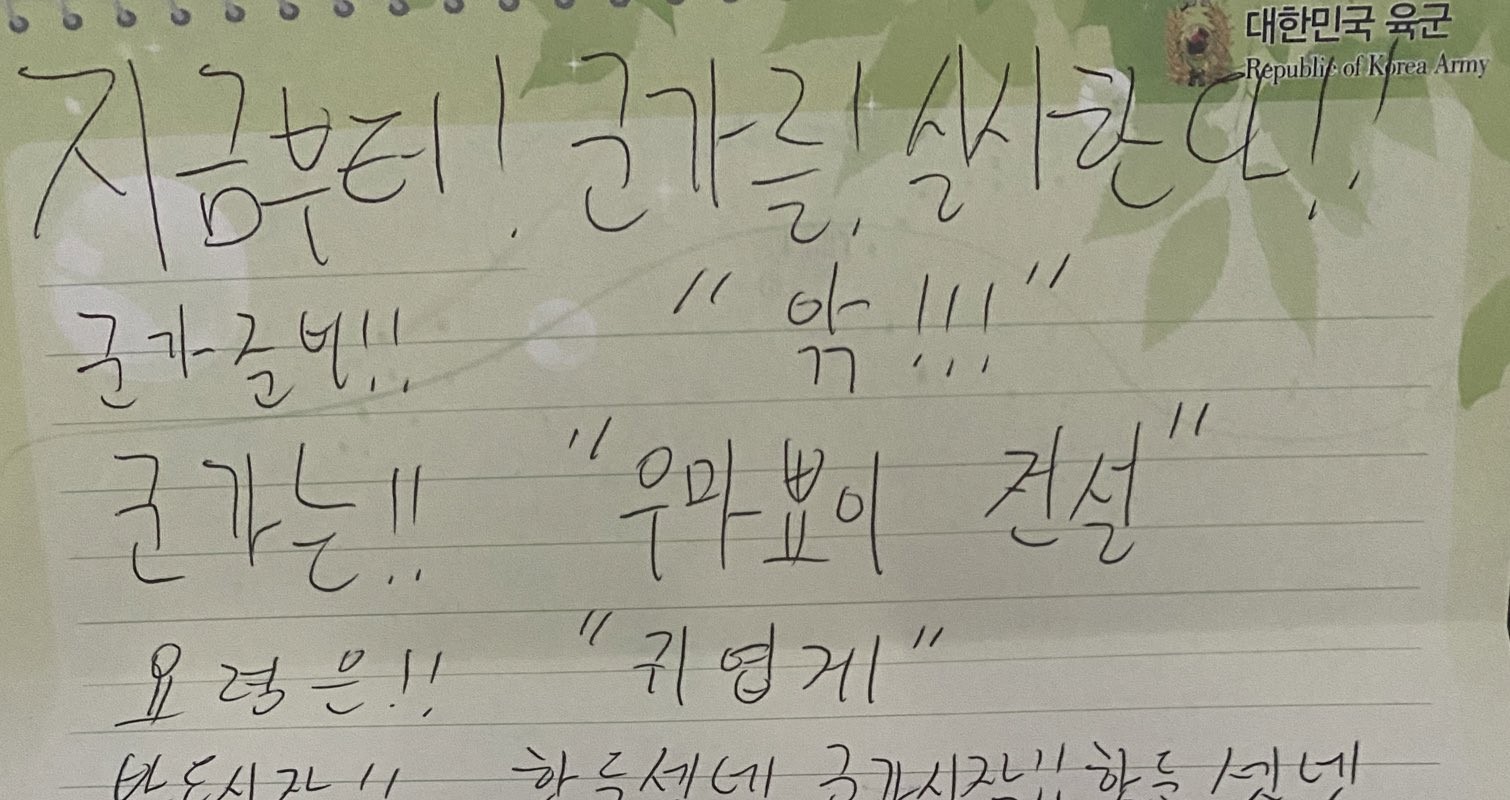 대한민국 육군
Republic of Korea Army
지금부터! 군가를! 실시한다!!
군가준비!! "악!!!"
군가는!! "우마뾰이 전설"
요령은!! "귀엽게"
반동시작!! 하두세네 군가시작!! 하둘셋넷